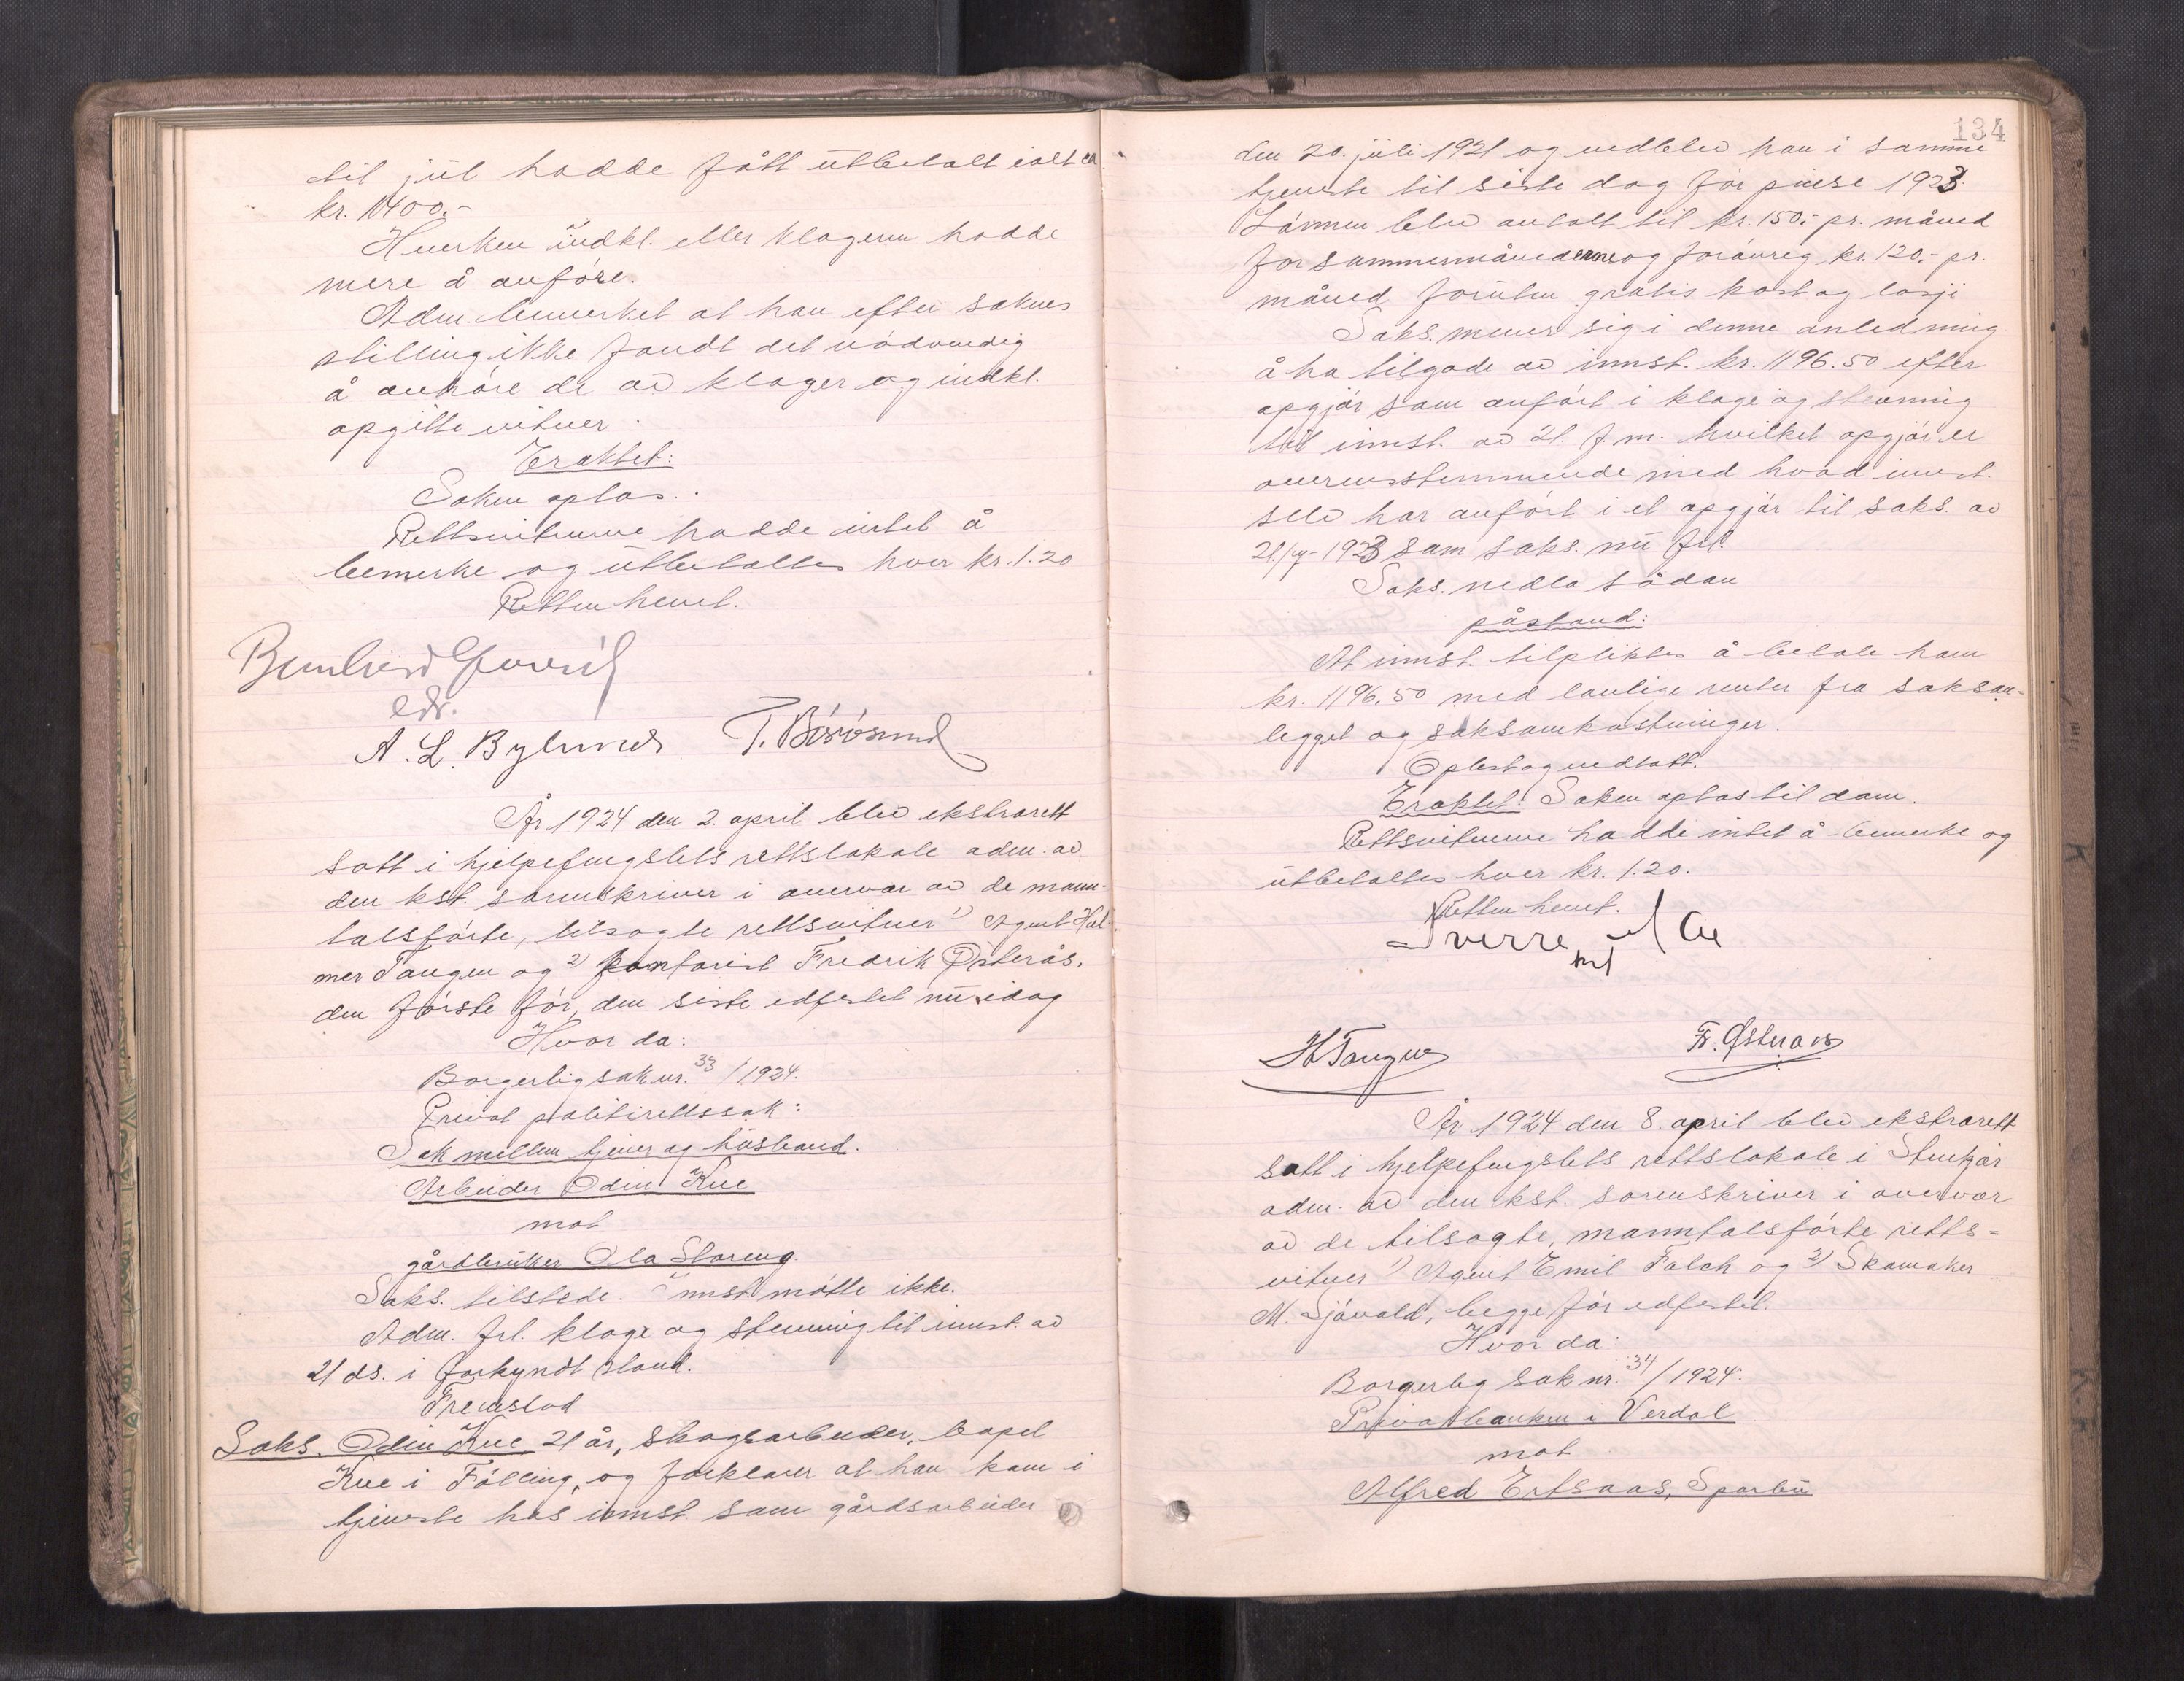 til jul hadde fått utbetalt ialt ca
kr. 1400.-
Hverken indkl. eller klageren hadde
mere å anføre.
Adm. bemerket at han efter sakens
stilling ikke fandt det nødvendig
å anhøre de av klager og indkl.
opgitte vitner.
Eraktet:
Saken optas.
Rettsvitnene hadde intet å
bemerke og utbetaltes hver kr. 1.20
Retten hevet.
edr.
A. L. Bylund T. Börösund
År 1924 den 2. april blev ekstrarett
satt i hjelpefengslets rettslokale adm. av
den kst. sorenskriver i overvær av de mann-
talsførte, tilsagte rettsvitner 1) Agent Hal-
mer Tangen og 2) kontorist Fredrik Østerås,
den første før, den siste edfestet nu idag
Hvor da:
Borgerlig sak nr. 33/1924.
Privat politirettssak:
Sak mellem tjener og husbond.
Arbeider Odin Kue
mot
gårdbruker Ola Storeng.
Saks. tilstede. Innst. møtte ikke.
Adm. frl. klage og stevning til innst. av
21 ds. i forkyndt stand.
Fremstod
Saks. Odin Kue 21 år, skogsarbeider, bopel
Kue i Følling, og forklarer at han kom i
tjeneste hos innst. som gårdsarbeider
134
den 20. juli 1921 og vedblev han i samme
tjeneste til siste dag før pinse 1923.
Lønnen blev avtalt til kr. 150.- pr. måned
for sommermånederne og forøvrig kr. 120.- pr.
måned foruten gratis kost og losji
Saks. mener sig i denne anledning
å ha tilgode av innst. kr. 1196.50 efter
opgjør som anført i klage og stevning
til innst. av 21. f.m. hvilket opgjør er
overensstemmende med hvad innst.
selv har anført i et opgjør til saks. av
21/7-1923 som saks. nu frl.
Saks. nedla sådan
påstand:
At innst. tilpliktes å betale ham
kr. 1196.50 med lovlige renter fra saksan-
legget og saksomkostninger.
Oplest og vedtatt.
Eraktet: Saken optas til dom.
Rettsvitnene hadde intet å bemerke og
utbetaltes hver kr. 1.20.
Retten hevet.
Sverre
kst
H Tangen Fr. Østeraas
År 1924 den 8. april blev ekstrarett
satt i hjelpefengslets rettslokale i Stenkjær
adm. av den kst. sorenskriver i overvær
av de tilsagte, manntalsførte retts-
vitner 1) Agent Emil Falch og 2) Skomaker
M. Sjøvold, begge før edfestet.
Hvor da:
Borgerlig sak nr. 34/1924:
Privatbanken i Verdal
mot
Alfred Ertsaas, Sparbu